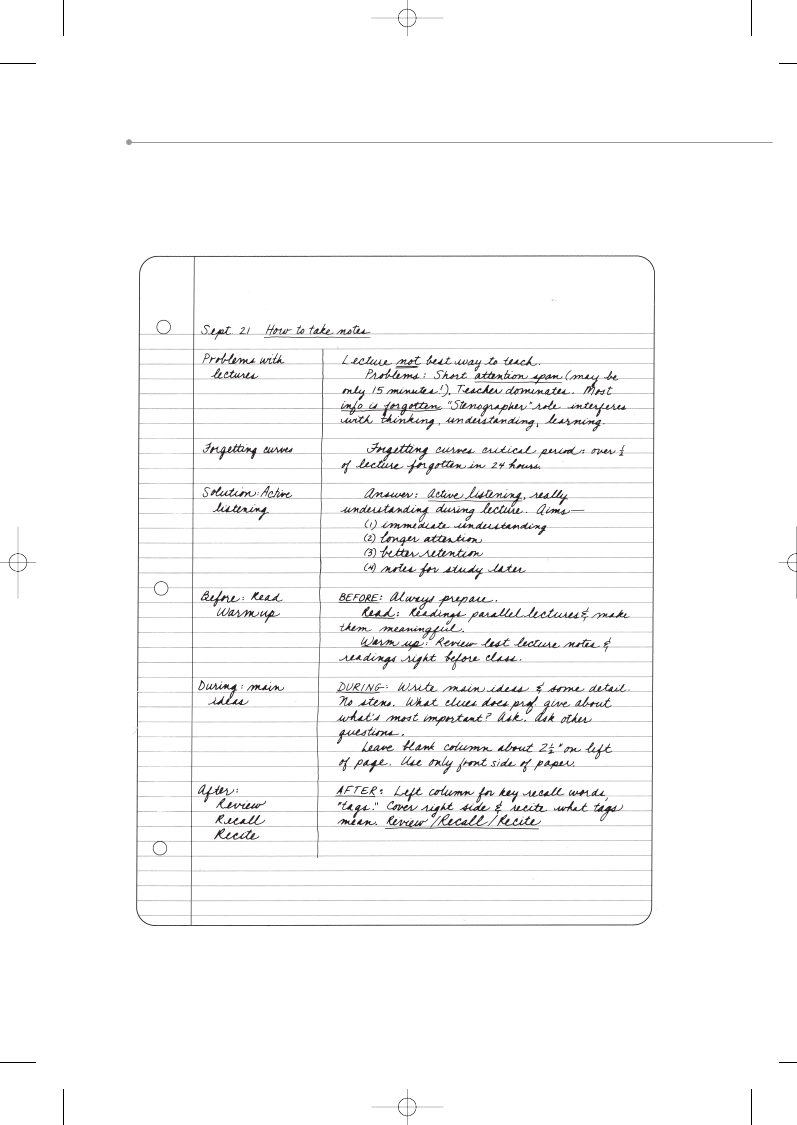 Sept. 21 How to take notes
Problems with Lecture not best way to teach.
lectures Problems: Short attention span (may be
only 15 minutes!). Teacher dominates. Most
info is forgotten. "Stenographer" role interferes
with thinking, understanding, learning.
Forgetting curves Forgetting curves critical period: over ½
of lecture forgotten in 24 hours.
Solution: Active Answer: Active listening, really
listening understanding during lecture. Aims—
(1) immediate understanding
(2) longer attention
(3) better retention
(4) notes for study later
Before: Read BEFORE: Always prepare.
Warm up Read: Readings parallel lectures & make
them meaningful.
Warm up: Review last lecture notes &
readings right before class.
During: main DURING: Write main ideas & some detail.
ideas No steno. What clues does prof. give about
what's most important? Ask. Ask other
questions.
Leave blank column about 2½" on left
of page. Use only front side of paper.
After: AFTER: Left column for key recall words,
Review "tags." Cover right side & recite what tags
Recall mean. Review/Recall/Recite
Recite